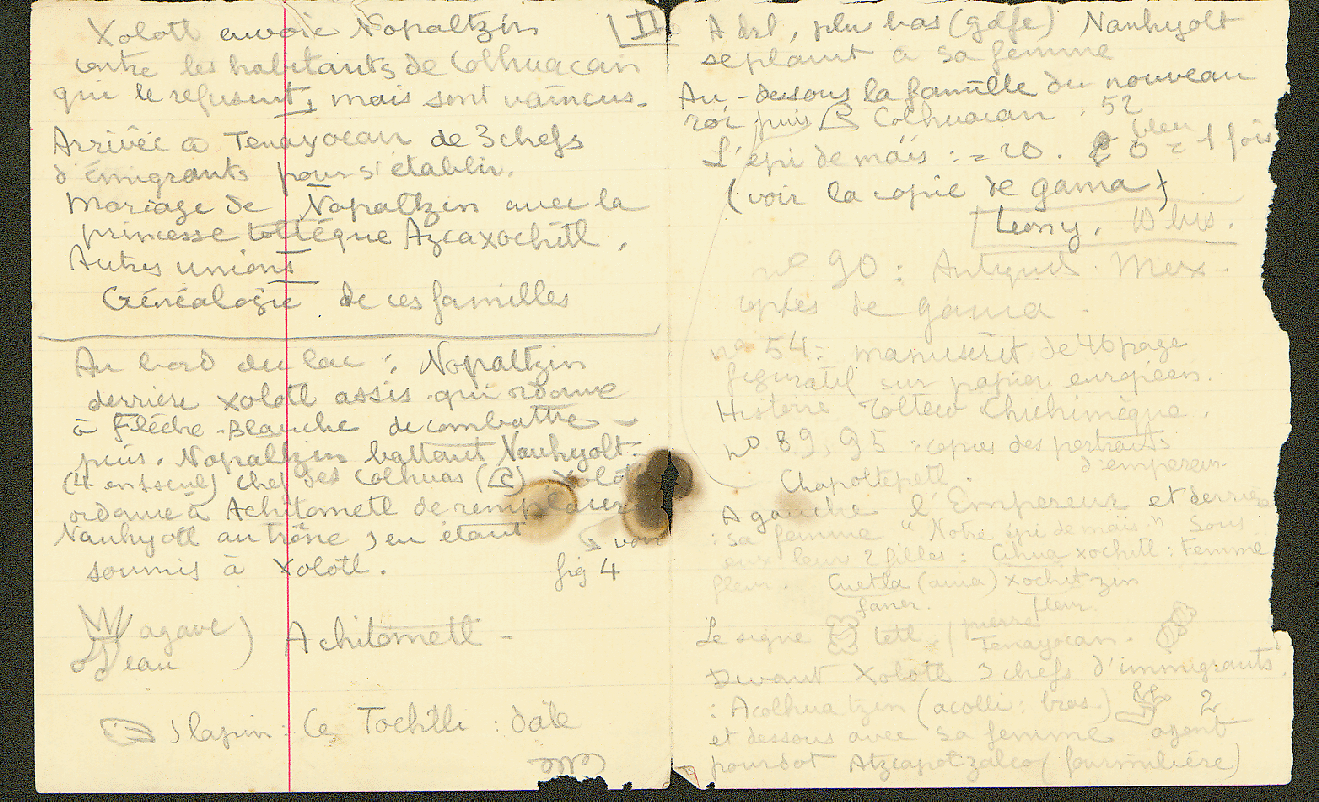 II
Xolotl envoie Nopaltzin
contre les habitants de Colhuacan
qui le refusent, mais sont vaincus.
Arrivée à Tenayocan de 3 chefs
d'émigrants pour s'établir.
Mariage de Nopaltzin avec la
princesse toltèque Azcaxochitl,
Autres unions
Généalogie de ces familles
Au bord du lac : Nopaltzin
derrière Xolotl assis qui ordonne
à Flèche-Blanche de combattre -
puis. Nopaltzin battant Nanhyolt
chef des Colhuas
ordonne à Achitometl de remplacer
Nanhyotl au trône, en étant
soumis à Xolotl.
voir
fig 4
agave
eau
) Achitometl -
lapin : Ce Tochtli : date
A drt, plus bas (golfe) Nanhyolt
se plaint à sa femme
Au-dessous la famille du nouveau
roi puis Colhuacan. 52
L'épi de maïs : = 20. bleu = 1 fois
(voir la copie de gama)
10 bis.
n° 90 : Antiquit. Mex-
copies de gama.
n° 54 : manuscrit de 46 page
figuratif sur papier européen.
Histoire Tolteco Chichimèque.
n° 89, 95 : copies des portraits
d'empereur
Chapoltepetl.
A gauche l'Empereur et derrière
: sa femme "Notre épi de maïs" Sous
eux leur 2 filles : Cihua xochitl : Femme
fleur. Cuetla (ama) xochitzin
faner. fleur
Le signe tetl / pierre Tenayocan.
Devant Xolotl 3 chefs d'immigrants
: Acolhua tzin (acolli : bras) 2
et dessous avec sa femme ayant
pour dot Atzcapotzalco (fourmilière)